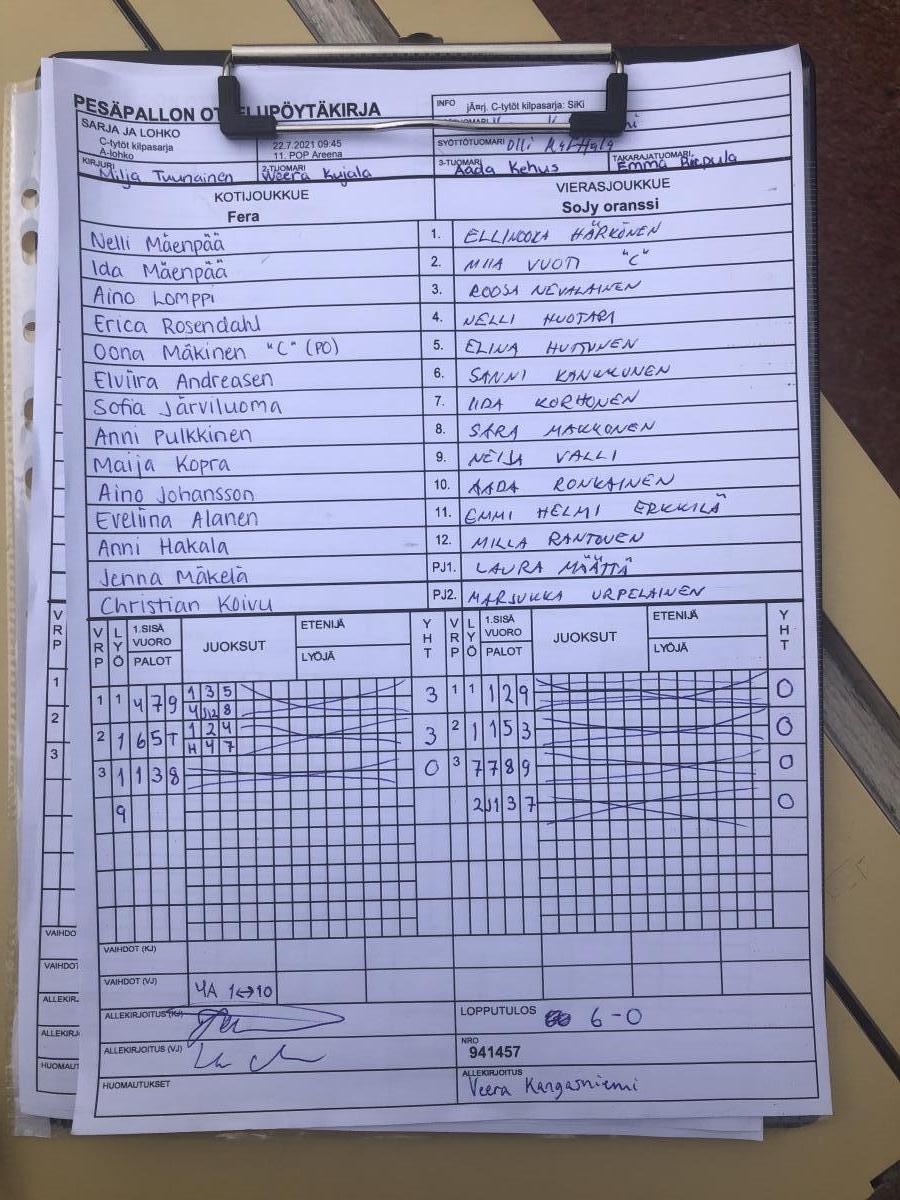 PESÄPALLON OTTELUPÖYTÄKIRJA
INFO jÃ¤rj. C-tytöt kilpasarja: SiKi
SARJA JA LOHKO
C-tytöt kilpasarja
A-lohko
22.7.2021 09:45
11. POP Areena
SYÖTTÖTUOMARI Olli
KIRJURI Milja Tuunainen
2-TUOMARI Weera Kujala
3-TUOMARI Aada Kehus
TAKARAJATUOMARI Emma
KOTIJOUKKUE VIERASJOUKKUE
Fera SoJy oranssi
Nelli Mäenpää 1. ELLINOORA HÄRKÖNEN
Ida Mäenpää 2. MIIA VUOTI "C"
Aino Lomppi 3. ROOSA NEVALAINEN
Erica Rosendahl 4. NELLI HUOTARI
Oona Mäkinen "C" (PO) 5. ELINA HUTTUNEN
Elviira Andreasen 6. SANNI KANKKUNEN
Sofia Järviluoma 7. IIDA KORHONEN
Anni Pulkkinen 8. SARA MAKKONEN
Maija Kopra 9. NELJA VALLI
Aino Johansson 10. AADA RONKAINEN
Eveliina Alanen 11. EMMI HELMI ERKKILÄ
Anni Hakala 12. MILLA RANTONEN
Jenna Mäkelä PJ1. LAURA MÄÄTTÄ
Christian Koivu PJ2. MARJUKKA URPELAINEN
VRP LYÖ 1.SISÄ VUORO PALOT JUOKSUT ETENIJÄ LYÖJÄ YHT VRP LYÖ 1.SISÄ VUORO PALOT JUOKSUT ETENIJÄ LYÖJÄ YHT
VRP
1
2
3
1 1 4 7 9 1 3 5 3 1 1 1 2 9 0
4 J12 8
2 1 6 5 T 1 2 4 3 2 1 1 5 3 0
H 4 7
3 1 1 3 8 0 3 7 7 8 9 0
9 2 J1 3 7 0
VAIHDOT (KJ)
VAIHDOT (VJ) 4A 1↔10
ALLEKIRJOITUS (KJ)
LOPPUTULOS 6-0
ALLEKIRJOITUS (VJ)
NRO
941457
HUOMAUTUKSET
ALLEKIRJOITUS
Veera Kangasniemi
VAIHDO
VAIHDOT
ALLEKIRJ
ALLEKIRJ
HUOMAUT